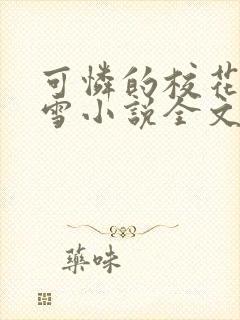 可憐的校花
雪小說全文
藥味